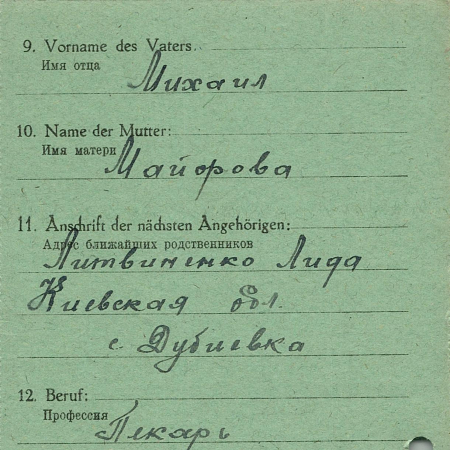 9. Vorname des Vaters
Имя отца
Михаил
10. Name der Mutter:
Имя матери
Майорова
11. Anschrift der nächsten Angehörigen:
Адрес ближайших родственников
Литвиненко Лида
Киевская обл.
с. Дубиевка
12. Beruf:
Профессия
Пекарь